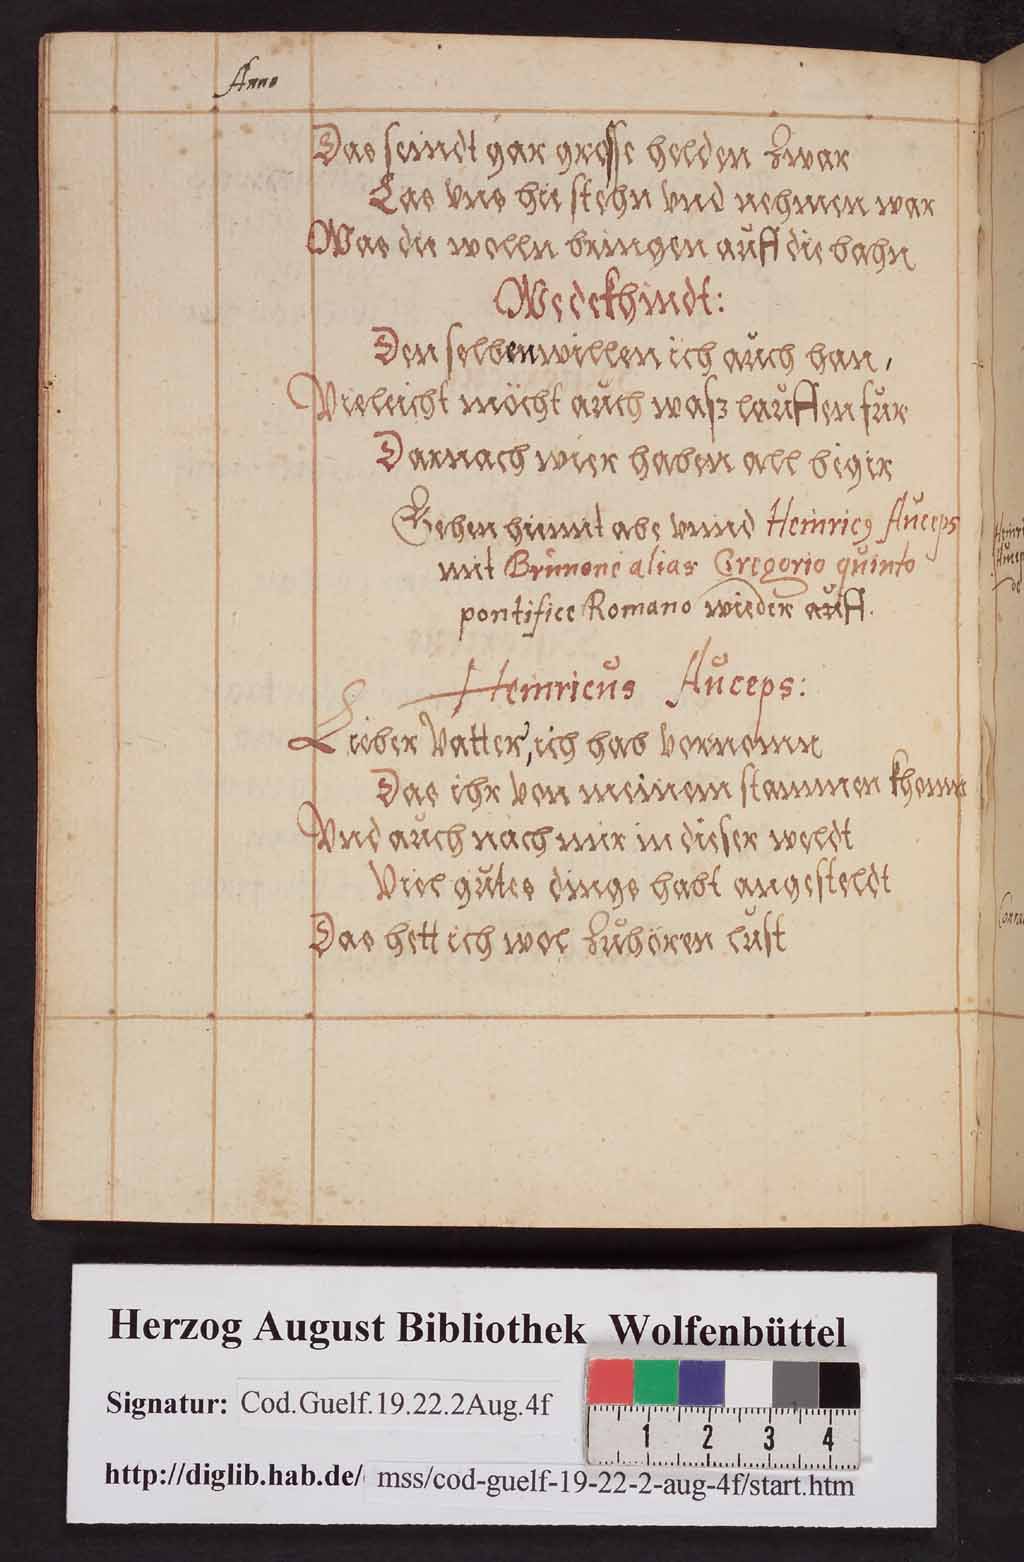 Anno
Das seindt gar grosse helden Zwar
Las vns hie stehn vnd nehmen war
Was die wolln bringen auff die bahn
Wedekhindt:
Den selben willen ich auch han,
Vieleicht möcht auch wasz lauffen für
Darnach wier haben all begir
Gehen hiemit abe vnnd Heinricg Auceps
mit Brunone alias Gregorio quinto
pontifice Romano wieder auff.
Heinricus Auceps:
Lieber Vatter, ich hab vernomn
Das ihr von meinem stammen khomn
Vnd auch nach mir in dieser weldt
Viel gutes dings habt angesteldt
Das hett ich wol Zuhören lust
Herzog August Bibliothek Wolfenbüttel
Signatur: Cod.Guelf.19.22.2Aug.4f
1 2 3 4
http://diglib.hab.de/ mss/cod-guelf-19-22-2-aug-4f/start.htm